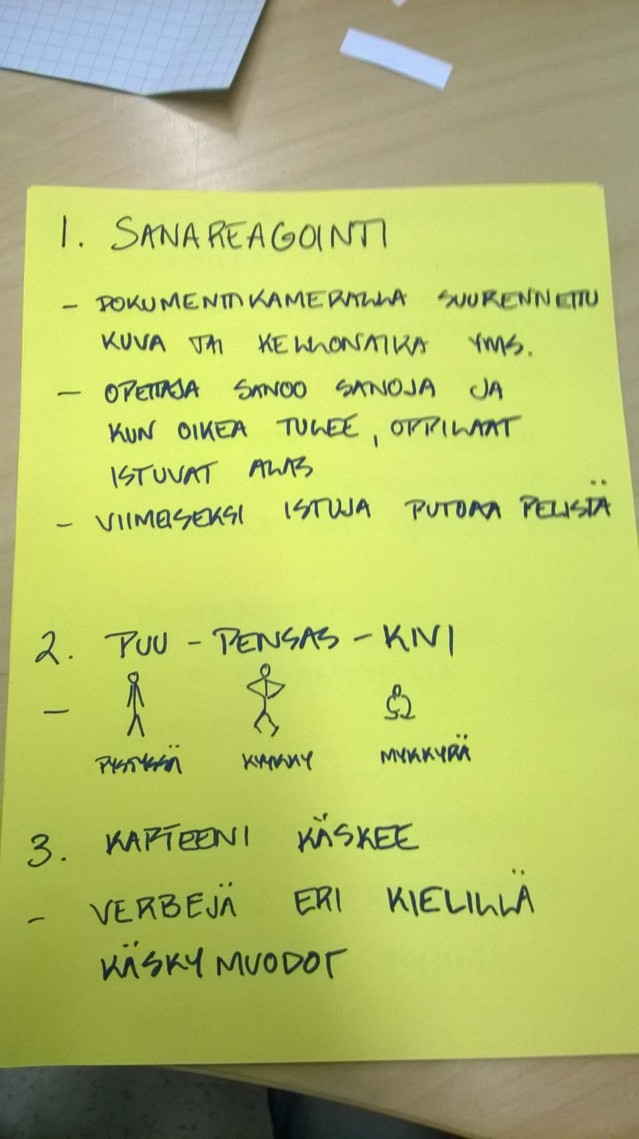 1. SANAREAGOINTI
- DOKUMENTTIKAMERALLA SUURENNETTU
KUVA TAI KELLONAIKA YMS.
- OPETTAJA SANOO SANOJA JA
KUN OIKEA TULEE, OPPILAAT
ISTUVAT ALAS
- VIIMEISEKSI ISTUJA PUTOAA PELISTÄ
2. PUU - PENSAS - KIVI
-
PYSTYSSÄ KYYKKY MYKKYRÄ
3. KAPTEENI KÄSKEE
- VERBEJÄ ERI KIELILLÄ
KÄSKYMUODOT